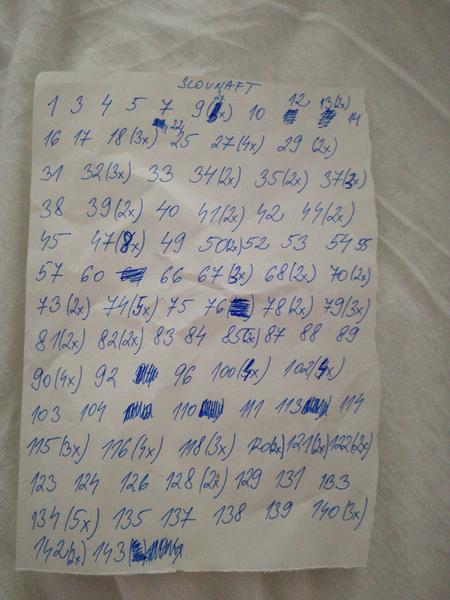 SLOVNAFT
1 3 4 5 7 9 (2x) 10 12 13 (2x) 14
16 17 18 (3x) 22 25 27 (4x) 29 (2x)
31 32 (3x) 33 34 (2x) 35 (2x) 37 (3x)
38 39 (2x) 40 41 (2x) 42 44 (2x)
45 47 (8x) 49 50 (2x) 52 53 54 55
57 60 66 67 (3x) 68 (2x) 70 (2x)
73 (2x) 74 (5x) 75 76 78 (2x) 79 (3x)
81 (2x) 82 (2x) 83 84 85 87 88 89
90 (4x) 92 96 100 (4x) 102 (4x)
103 104 110 111 113 114
115 (3x) 116 (4x) 118 (3x) 120 (2x) 121 (2x) 122 (2x)
123 124 126 128 (2x) 129 131 133
134 (5x) 135 137 138 139 140 (3x)
142 (2x) 143